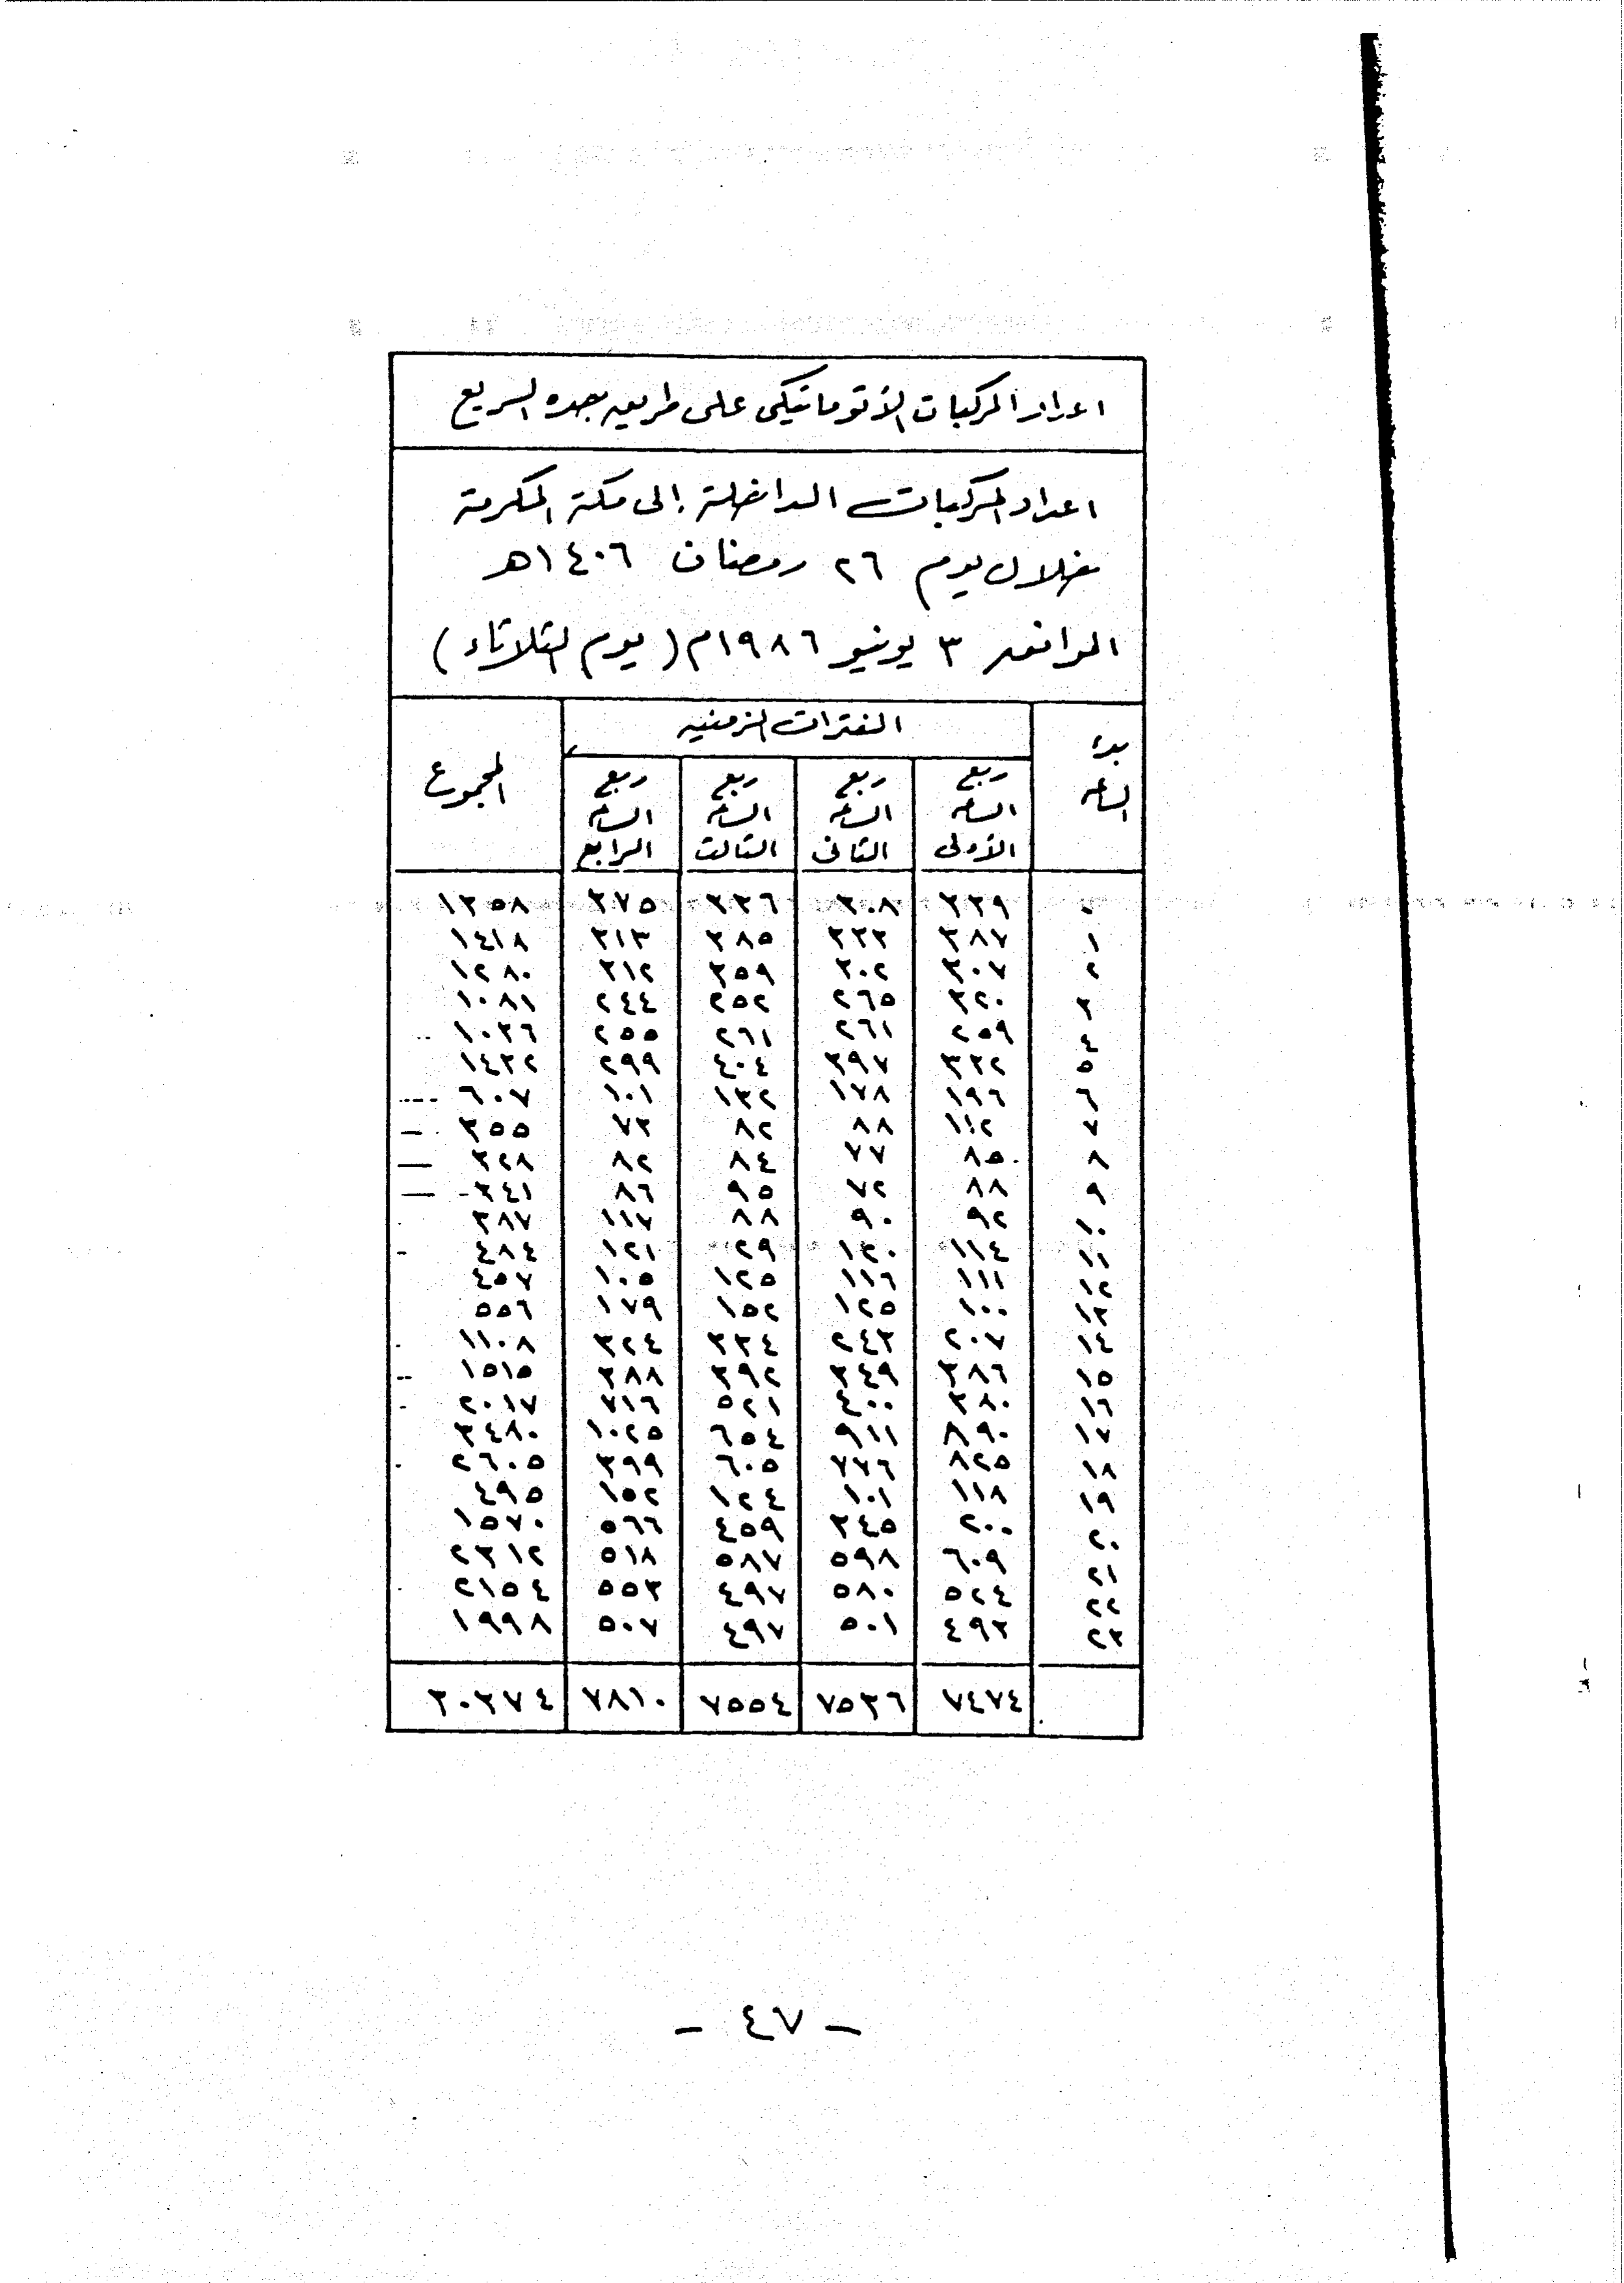 اعداد المركبات الأتوماتيكى على طريق جده السريع
اعداد المركبات الداخلة إلى مكة المكرمة
خلال يوم ٢٦ رمضان ١٤٠٦هـ
الموافق ٣ يونيو ١٩٨٦م (يوم الثلاثاء)
بدء الساعه الفترات الزمنيه المجموع
ربع الساعه الأولى ربع الساعه الثانى ربع الساعه الثالث ربع الساعه الرابع
٠ ٣٣٩ ٣٠٨ ٣٣٦ ٣٧٥ ١٣٥٨
١ ٣٨٧ ٣٣٣ ٣٨٥ ٣١٣ ١٤١٨
٢ ٣٠٧ ٣٠٢ ٣٥٩ ٣١٢ ١٢٨٠
٣ ٣٢٠ ٢٦٥ ٢٥٢ ٢٤٤ ١٠٨١
٤ ٢٥٩ ٢٦١ ٢٦١ ٢٥٥ ١٠٣٦
٥ ٣٣٢ ٣٩٧ ٤٠٤ ٢٩٩ ١٤٣٢
٦ ١٩٦ ١٧٨ ١٣٢ ١٠١ ٦٠٧
٧ ١١٢ ٨٨ ٨٢ ٧٣ ٣٥٥
٨ ٨٥ ٧٧ ٨٤ ٨٢ ٣٢٨
٩ ٨٨ ٧٢ ٩٥ ٨٦ ٣٤١
١٠ ٩٢ ٩٠ ٨٨ ١١٧ ٣٨٧
١١ ١١٤ ١٢٠ ٢٩ ١٢١ ٤٨٤
١٢ ١١١ ١١٦ ١٢٥ ١٠٥ ٤٥٧
١٣ ١٠٠ ١٢٥ ١٥٢ ١٧٩ ٥٥٦
١٤ ٢٠٧ ٢٤٣ ٣٣٤ ٣٢٤ ١١٠٨
١٥ ٣٨٦ ٣٤٩ ٣٩٢ ٣٨٨ ١٥١٥
١٦ ٣٨٠ ٤٠٠ ٥٢١ ٧١٦ ٢٠١٧
١٧ ٨٩٠ ٩١١ ٦٥٤ ١٠٢٥ ٣٤٨٠
١٨ ٨٢٥ ٧٧٦ ٦٠٥ ٣٩٩ ٢٦٠٥
١٩ ١١٨ ١٠١ ١٢٤ ١٥٢ ٤٩٥
٢٠ ٢٠٠ ٣٤٥ ٤٥٩ ٥٦٦ ١٥٧٠
٢١ ٦٠٩ ٥٩٨ ٥٨٧ ٥١٨ ٢٣١٢
٢٢ ٥٢٤ ٥٨٠ ٤٩٧ ٥٥٣ ٢١٥٤
٢٣ ٤٩٣ ٥٠١ ٤٩٧ ٥٠٧ ١٩٩٨
٧٤٧٤ ٧٥٣٦ ٧٥٥٤ ٧٨١٠ ٣٠٣٧٤
- ٤٧ -